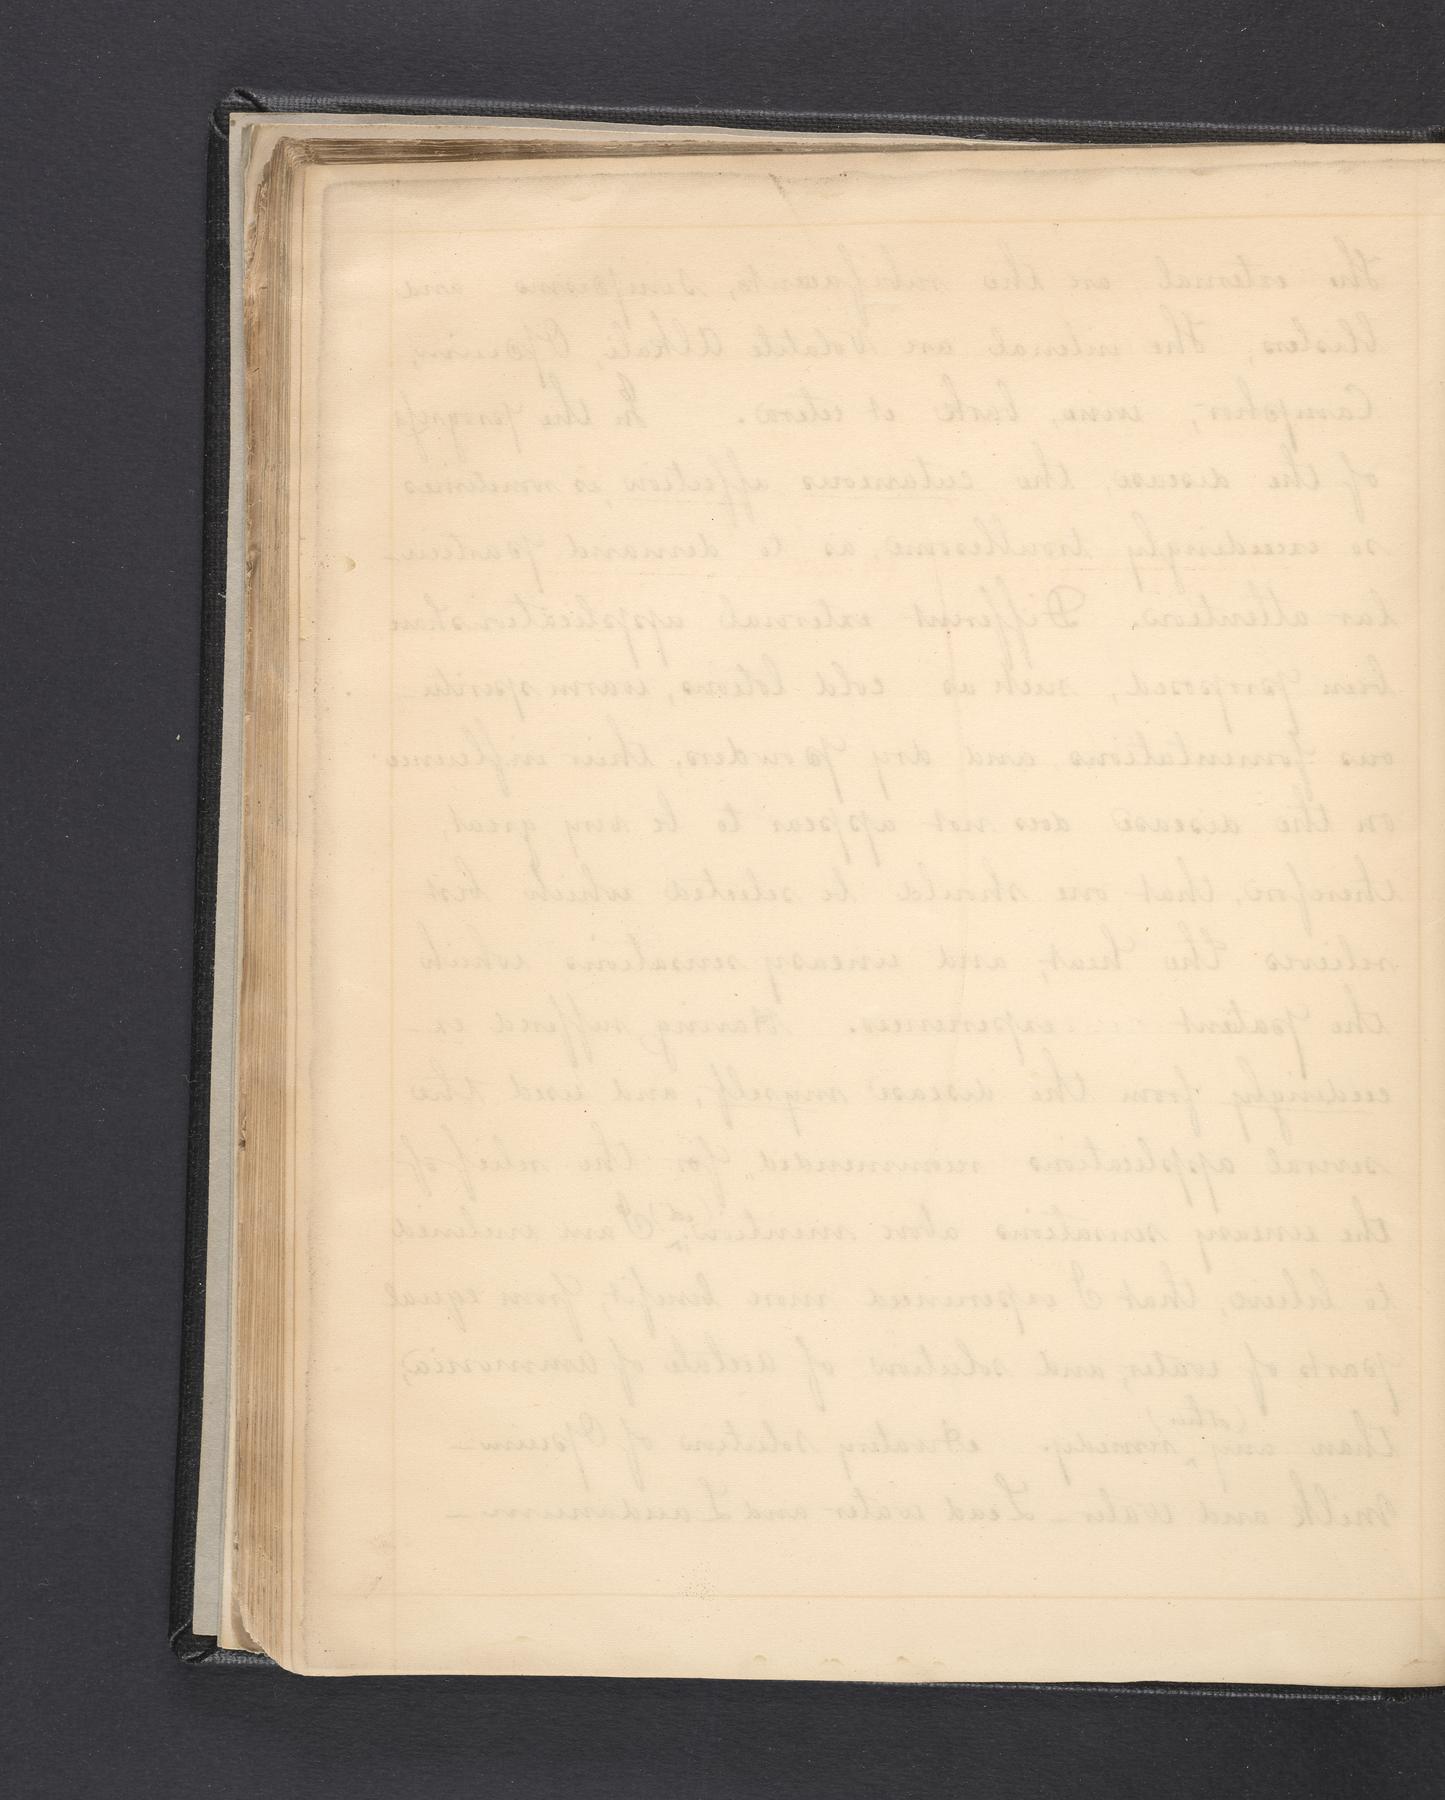 The external are the rubefacients, sinapisms and
blisters, The internal are Volatile Alkali, Opium,
Camphor, wine, bark et cetera. In the progress
of the disease, the cutaneous affection is sometimes
so exceedingly troublesome, as to demand particu-
lar attention. Different external applications have
been proposed, such as cold lotions, warm spiritu-
ous fomentations and dry powders, their influence
on the disease does not appear to be very great,
therefore, that one should be selected which best
relieves the heat, and uneasy sensations which
the patient experiences. Having suffered ex-
ceedingly from the disease myself, and used the
several applications recommended, for the relief of
the uneasy sensations above mentioned, I am inclined
to believe, that I experienced more benefit, from equal
parts of water, and solution of acetate of ammonia,
than any (other) remedy. solution of Opium -
Milk and Water - Lead water and Laudanum -